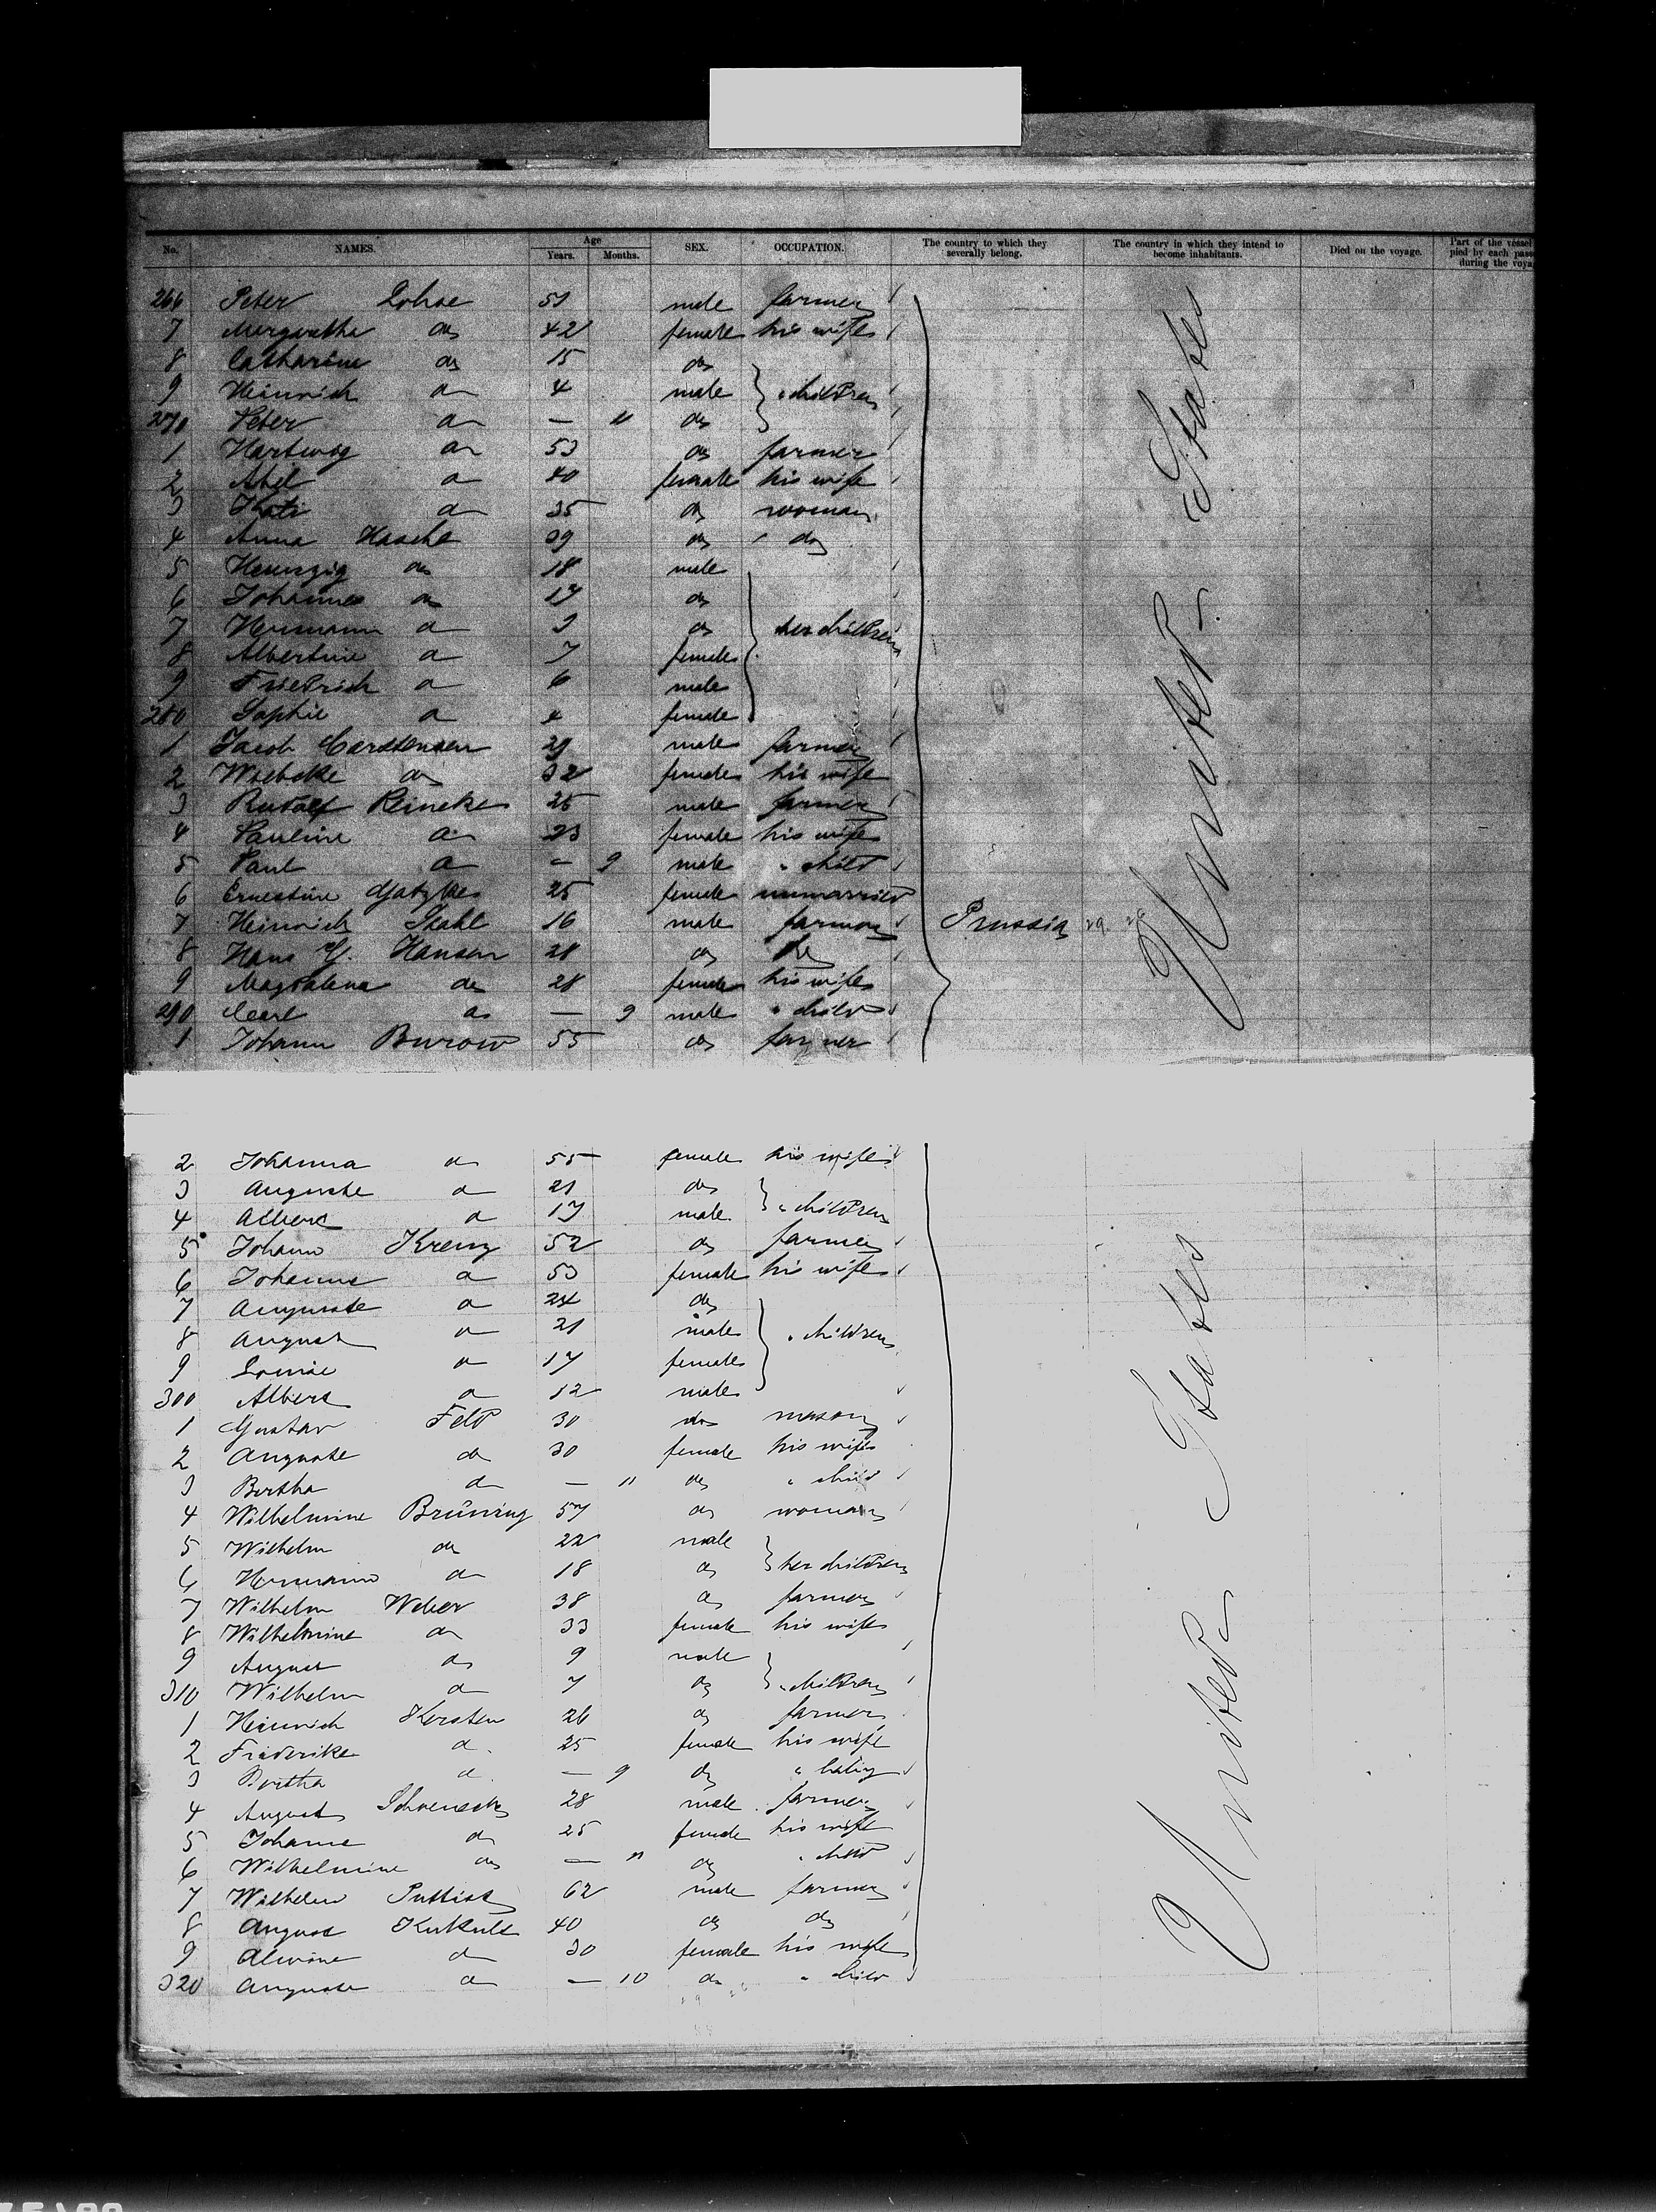 No. NAMES. Age Years. Months. SEX. OCCUPATION. The country to which they severally belong. The country in which they intend to become inhabitants. Died on the voyage. Part of the vessel
266 Peter Lohse 51 male farmer
7 Margaretha do 42 female his wife
8 Catharine do 15 do
9 Heinrich do 4 male " children
270 Peter do — 11 do
1 Hartwig do 53 do farmer
2 Abel do 40 female his wife
3 do 35 do woman
4 Anna Hasche 39 do do
5 do 18 male
6 Johannes do 17 do
7 Hermann do 9 do her children
8 Albertine do 7 female
9 Friedrich do 6 male
280 Sophie do 4 female
1 Jacob Carstensen 29 male farmer
2 Wiebke do 32 female his wife
3 Rudolf Reineke 25 male farmer
4 Pauline do 23 female his wife
5 Paul do — 9 male " child
6 Ernestine 25 female unmarried
7 Heinrich Stahl 16 male farmer Prussia
8 Hans Hansen 28 do do
9 Magdalena do 28 female his wife
290 Carl do — 9 male " child
1 Johann Burow 55 do farmer
2 Johanna do 55 female his wife
3 Auguste do 21 do
4 Albert do 17 male " children
5 Johann Krenz 52 do farmer
6 Johanne do 53 female his wife
7 Auguste do 24 do
8 August do 21 male " children
9 Louise do 17 female
300 Albert do 12 male
1 Gustav Feld 30 do mason
2 Auguste do 30 female his wife
3 Bertha do — 11 do " child
4 Wilhelmine Brüning 57 do woman
5 Wilhelm do 22 male
6 Hermann do 18 do her children
7 Wilhelm Weber 38 do farmer
8 Wilhelmine do 33 female his wife
9 August do 9 male
310 Wilhelm do 7 do " children
1 Heinrich Kersten 26 do farmer
2 Friderike do 25 female his wife
3 Bertha do — 9 do " baby
4 August 28 male farmer
5 Johanne do 25 female his wife
6 Wilhelmine do — 11 do " child
7 Wilhelm 62 male farmer
8 August 40 do do
9 Alwine do 30 female his wife
320 Auguste do — 10 do " child
United States
United States